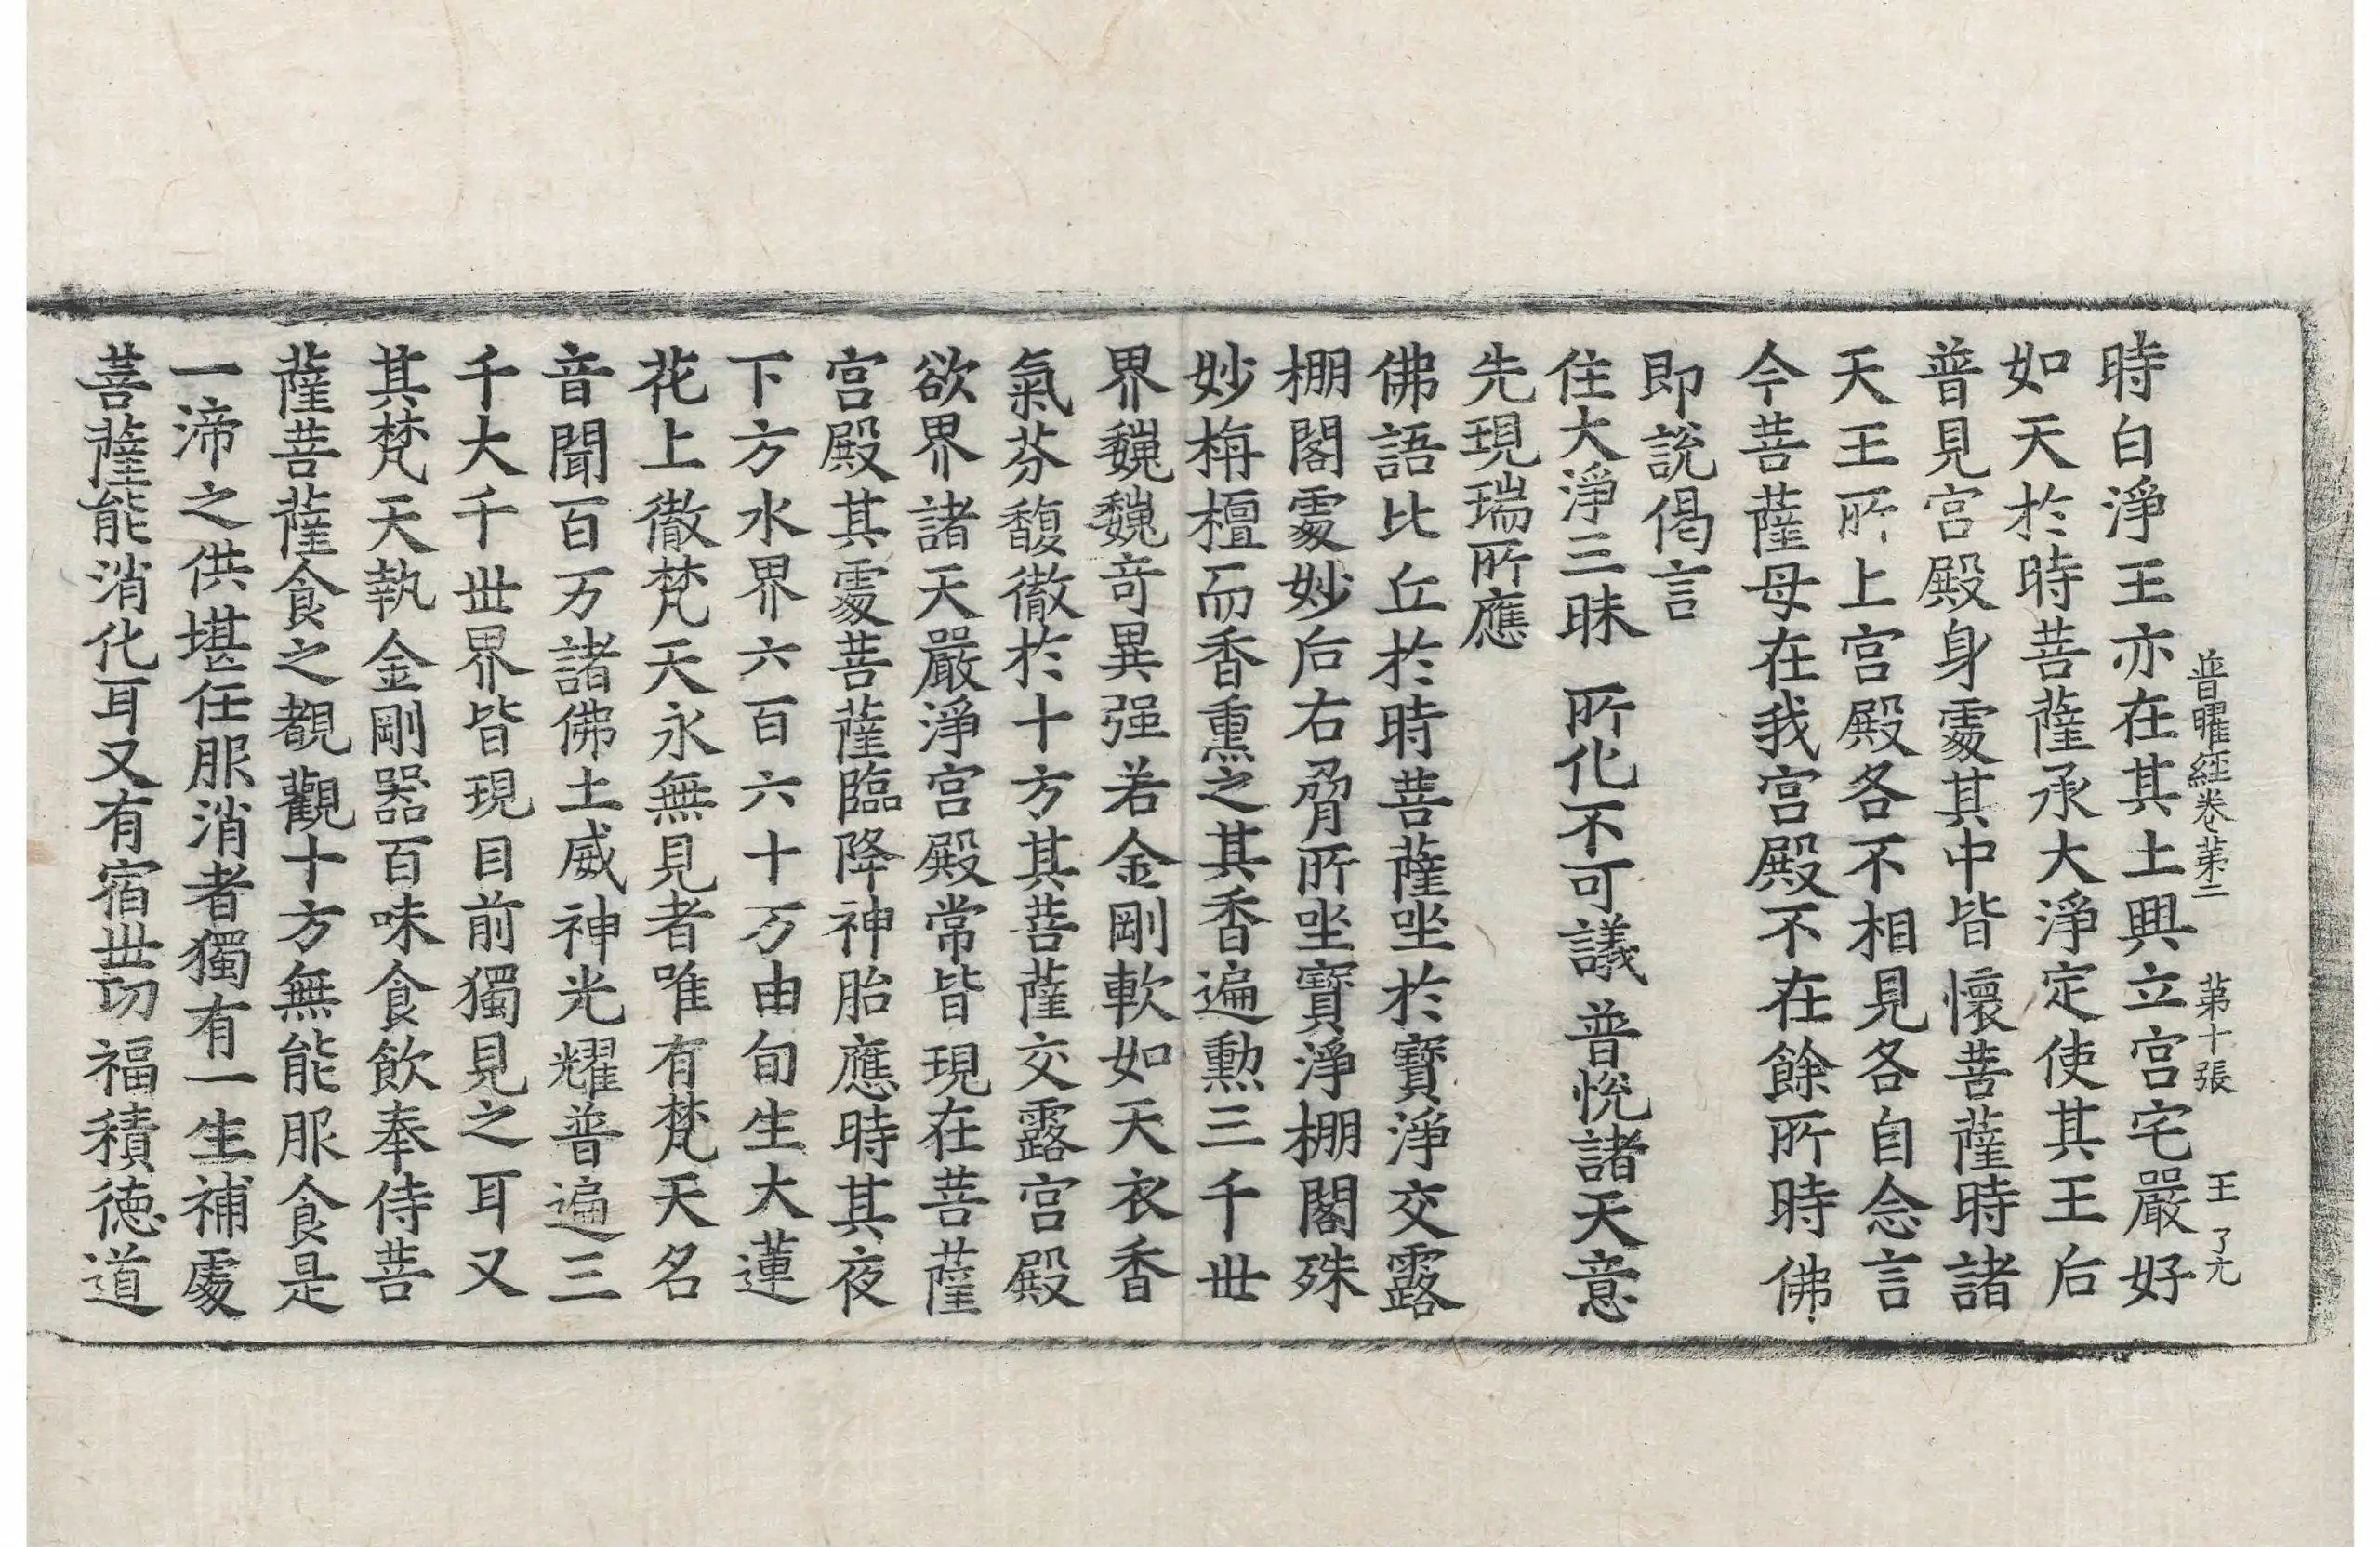 普曜經卷苐二　苐十張　王　了元
時白淨王亦在其土興立宮宅嚴好
如天於時菩薩承大淨定使其王后
普見宮殿身處其中皆懷菩薩時諸
天王所上宮殿各不相見各自念言
今菩薩母在我宮殿不在餘所時佛
即說偈言
住大淨三昧　所化不可議　普悅諸天意
先現瑞所應
佛語比丘於時菩薩坐於寶淨交露
棚閣處妙后右脅所坐寶淨棚閣殊
妙栴檀而香熏之其香遍勲三千世
界巍巍奇異强若金剛軟如天衣香
氣芬馥徹於十方其菩薩交露宮殿
欲界諸天嚴淨宮殿常皆現在菩薩
宮殿其處菩薩臨降神胎應時其夜
下方水界六百六十万由旬生大蓮
花上徹梵天永無見者唯有梵天名
音聞百万諸佛土威神光耀普遍三
千大千世界皆現目前獨見之耳又
其梵天執金剛器百味食飲奉侍菩
薩菩薩食之覩觀十方無能服食是
一渧之供堪任服消者獨有一生補處
菩薩能消化耳又有宿世功福積德道